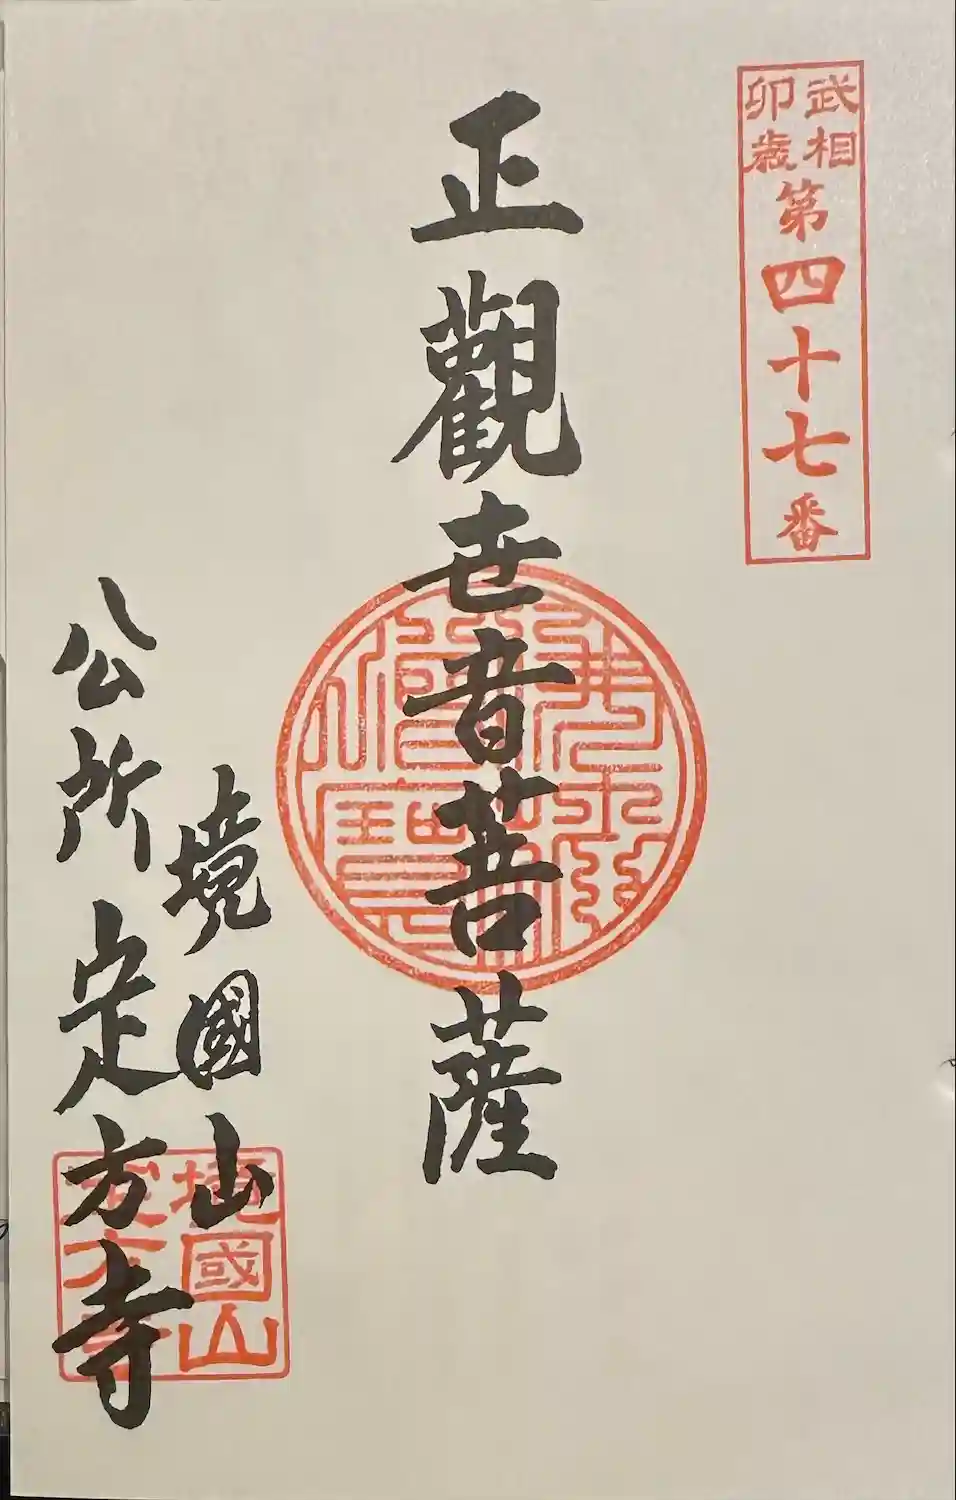 武相
卯歳
第四十七番
正觀世音菩薩
境國山
公所 定方寺
境國山
定方寺
佛法僧寶